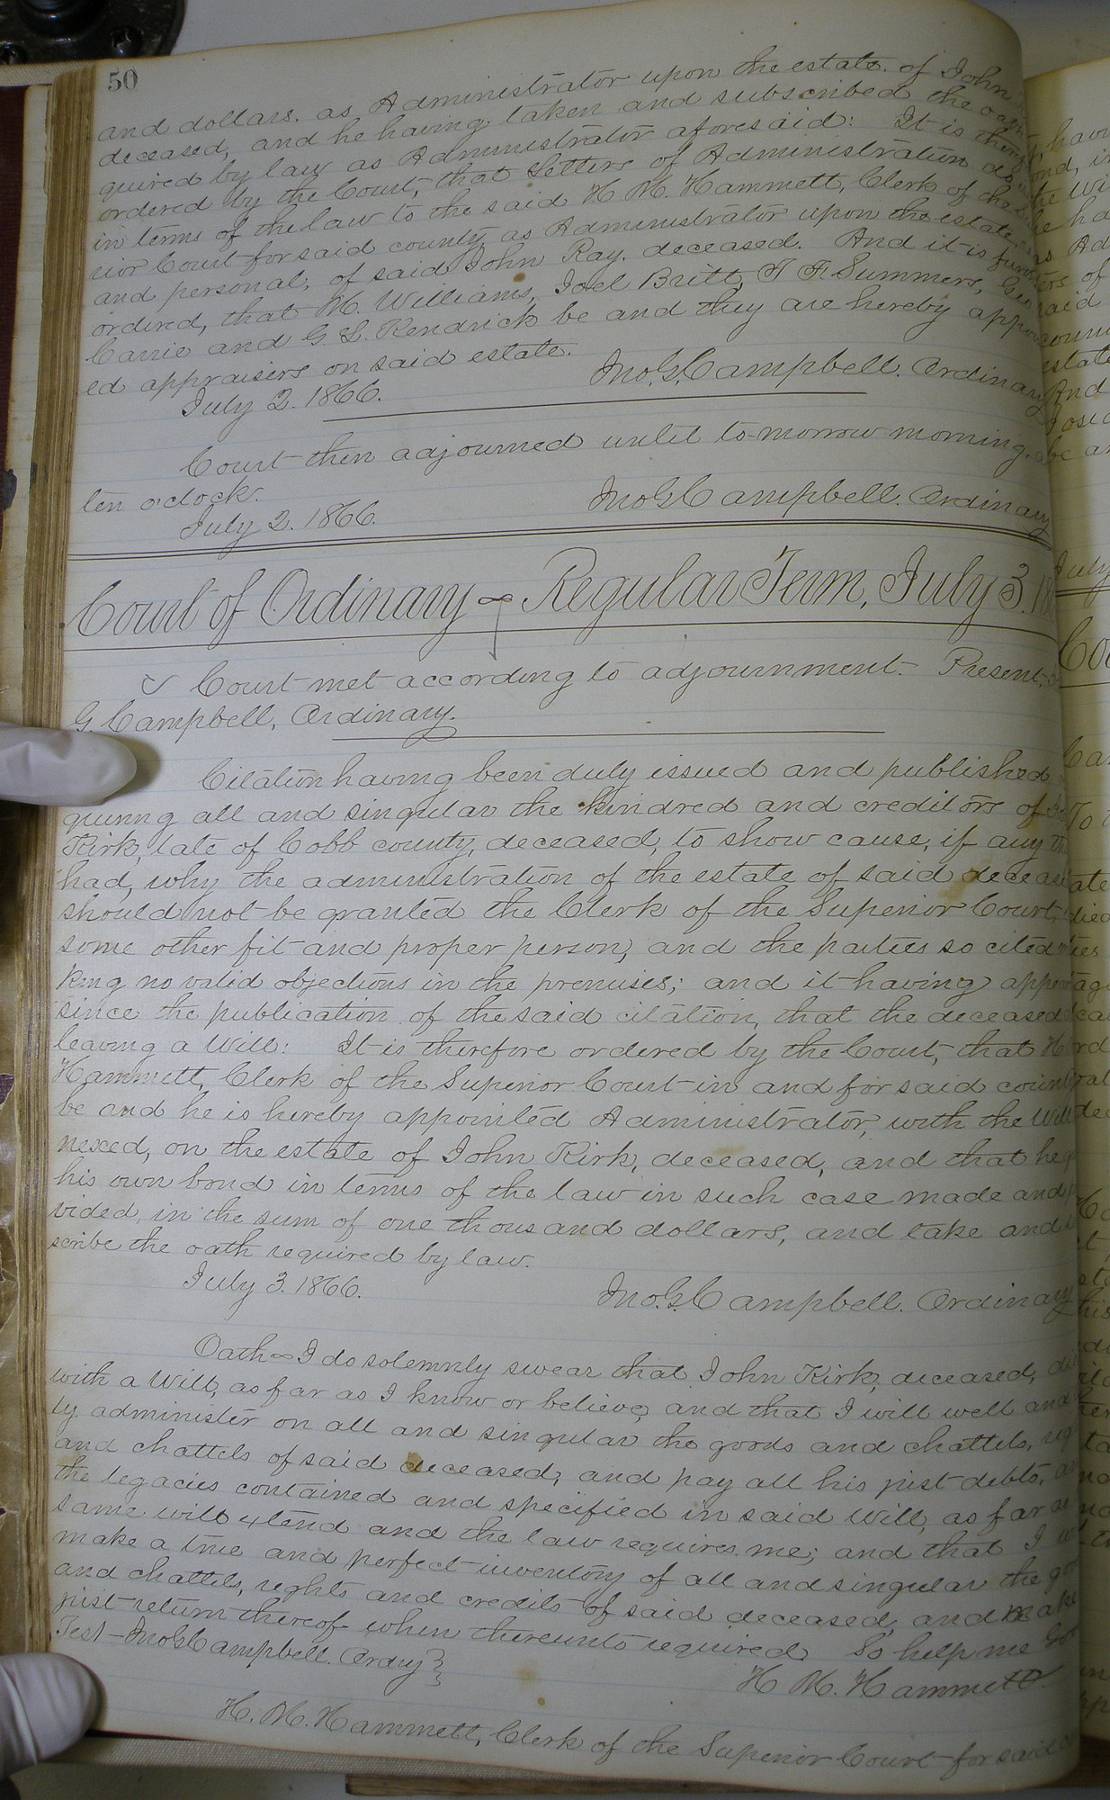 50
and dollars, as Administrator upon the estate of John
deceased, and he having taken and subscribed the oath
quired by law as Administrator aforesaid: It is there
ordered by the Court, that Letters of Administration do
in terms of the law to the said H. M. Hammett, Clerk of the
rior Court for said county, as Administrator upon the estate,
and personal, of said John Ray, deceased. And it is further
ordered, that M. Williams, Joel Britt, T F. Summers, Geo
Carrie and G L. Kendrick be and they are hereby appoint
ed appraisers on said estate.
July 2. 1866. Jno. G. Campbell. Ordinary
Court then adjourned until to-morrow morning,
ten o'clock.
July 2. 1866. Jno G Campbell. Ordinary
Court of Ordinary Regular Term, July 3. 18
Court met according to adjournment. Present,
G. Campbell, Ordinary.
Citation having been duly issued and published
quiring all and singular the kindred and creditors of
Kirk, late of Cobb county, deceased, to show cause, if any th
had, why the administration of the estate of said deceas
should not be granted the Clerk of the Superior Court,
some other fit and proper person, and the parties so cited
king no valid objections in the premises; and it having appe
since the publication of the said citation, that the deceased
leaving a Will: It is therefore ordered by the Court, that H
Hammett, Clerk of the Superior Court in and for said count
be and he is hereby appointed Administrator, with the Will
nexed, on the estate of John Kirk, deceased, and that he
his own bond in terms of the law in such case made and
vided, in the sum of one thousand dollars, and take and
scribe the oath required by law.
July 3. 1866. Jno. G. Campbell. Ordinary
Oath I do solemnly swear that John Kirk, deceased,
with a Will, as far as I know or believe, and that I will well and
ly administer on all and singular the goods and chattels,
and chattels of said deceased, and pay all his just debts,
the legacies contained and specified in said Will, as far as
same will extend and the law requires me; and that I
make a true and perfect inventory of all and singular the
and chattels, rights and credits of said deceased, and make
just return thereof when thereunto required So help me God
Test - Jno G Campbell. Ordry
H. M. Hammett
H. M. Hammett, Clerk of the Superior Court for said